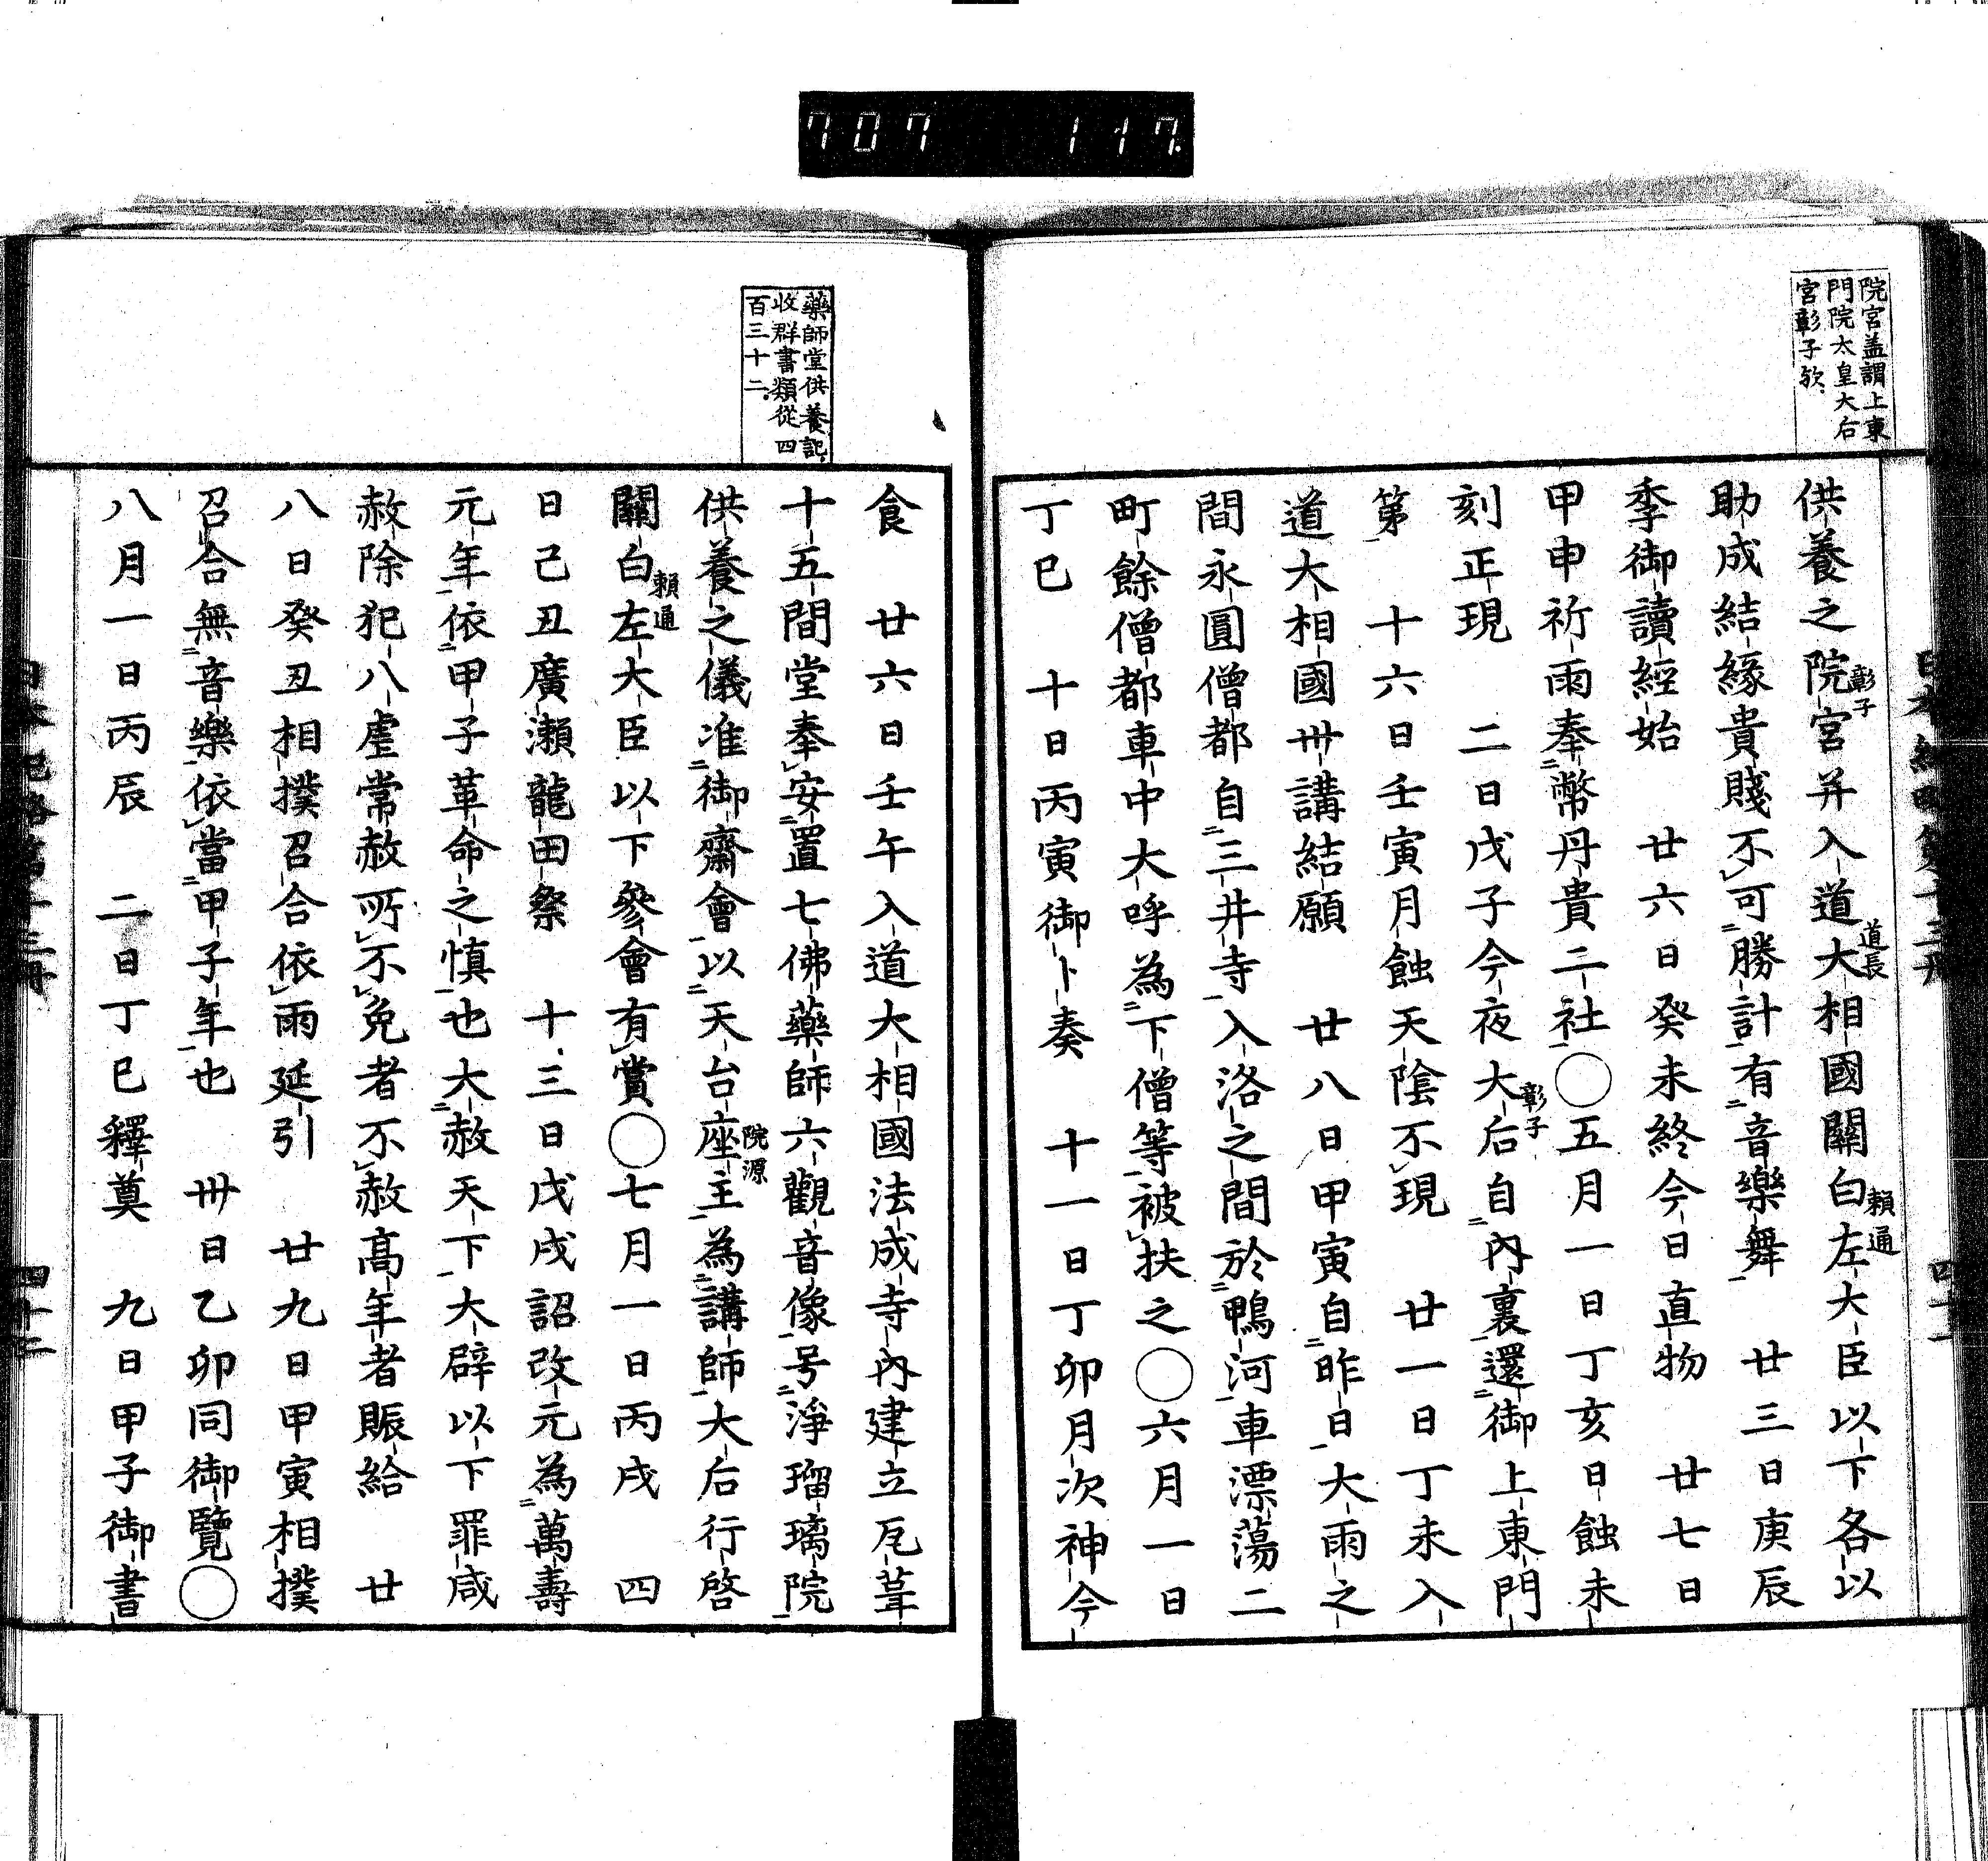 707 117
院宮盖謂上東
門院太皇大后
宮彰子歟
供養之院宮彰子并入道大相國道長關白左大臣頼通以下各以
助成結緣貴賤不可勝計有音樂舞　廿三日庚辰
季御讀經始　廿六日癸未終今日直物　廿七日
甲申祈雨奉幣丹貴二社○五月一日丁亥日蝕未
刻正現　二日戊子今夜大后彰子自內裏還御上東門
第　十六日壬寅月蝕天陰不現　廿一日丁未入
道大相國卅講結願　廿八日甲寅自昨日大雨之
間永圓僧都自三井寺入洛之間於鴨河車漂蕩二
町餘僧都車中大呼為下僧等被扶之○六月一日
丁巳　十日丙寅御卜奏　十一日丁卯月次神今
藥師堂供養記
收群書類從四
百三十二
食　廿六日壬午入道大相國法成寺內建立瓦葺
十五間堂奉安置七佛藥師六觀音像号淨瑠璃院
供養之儀准御齋會以天台座主院源為講師大后行啓
關白頼通左大臣以下參會有賞○七月一日丙戌　四
日己丑廣瀨龍田祭　十三日戊戌詔改元為萬壽
元年依甲子革命之慎也大赦天下大辟以下罪咸
赦除犯八虐常赦所不免者不赦高年者賑給　廿
八日癸丑相撲召合依雨延引　廿九日甲寅相撲
召合無音樂依當甲子年也　卅日乙卯同御覽○
八月一日丙辰　二日丁巳釋奠　九日甲子御書